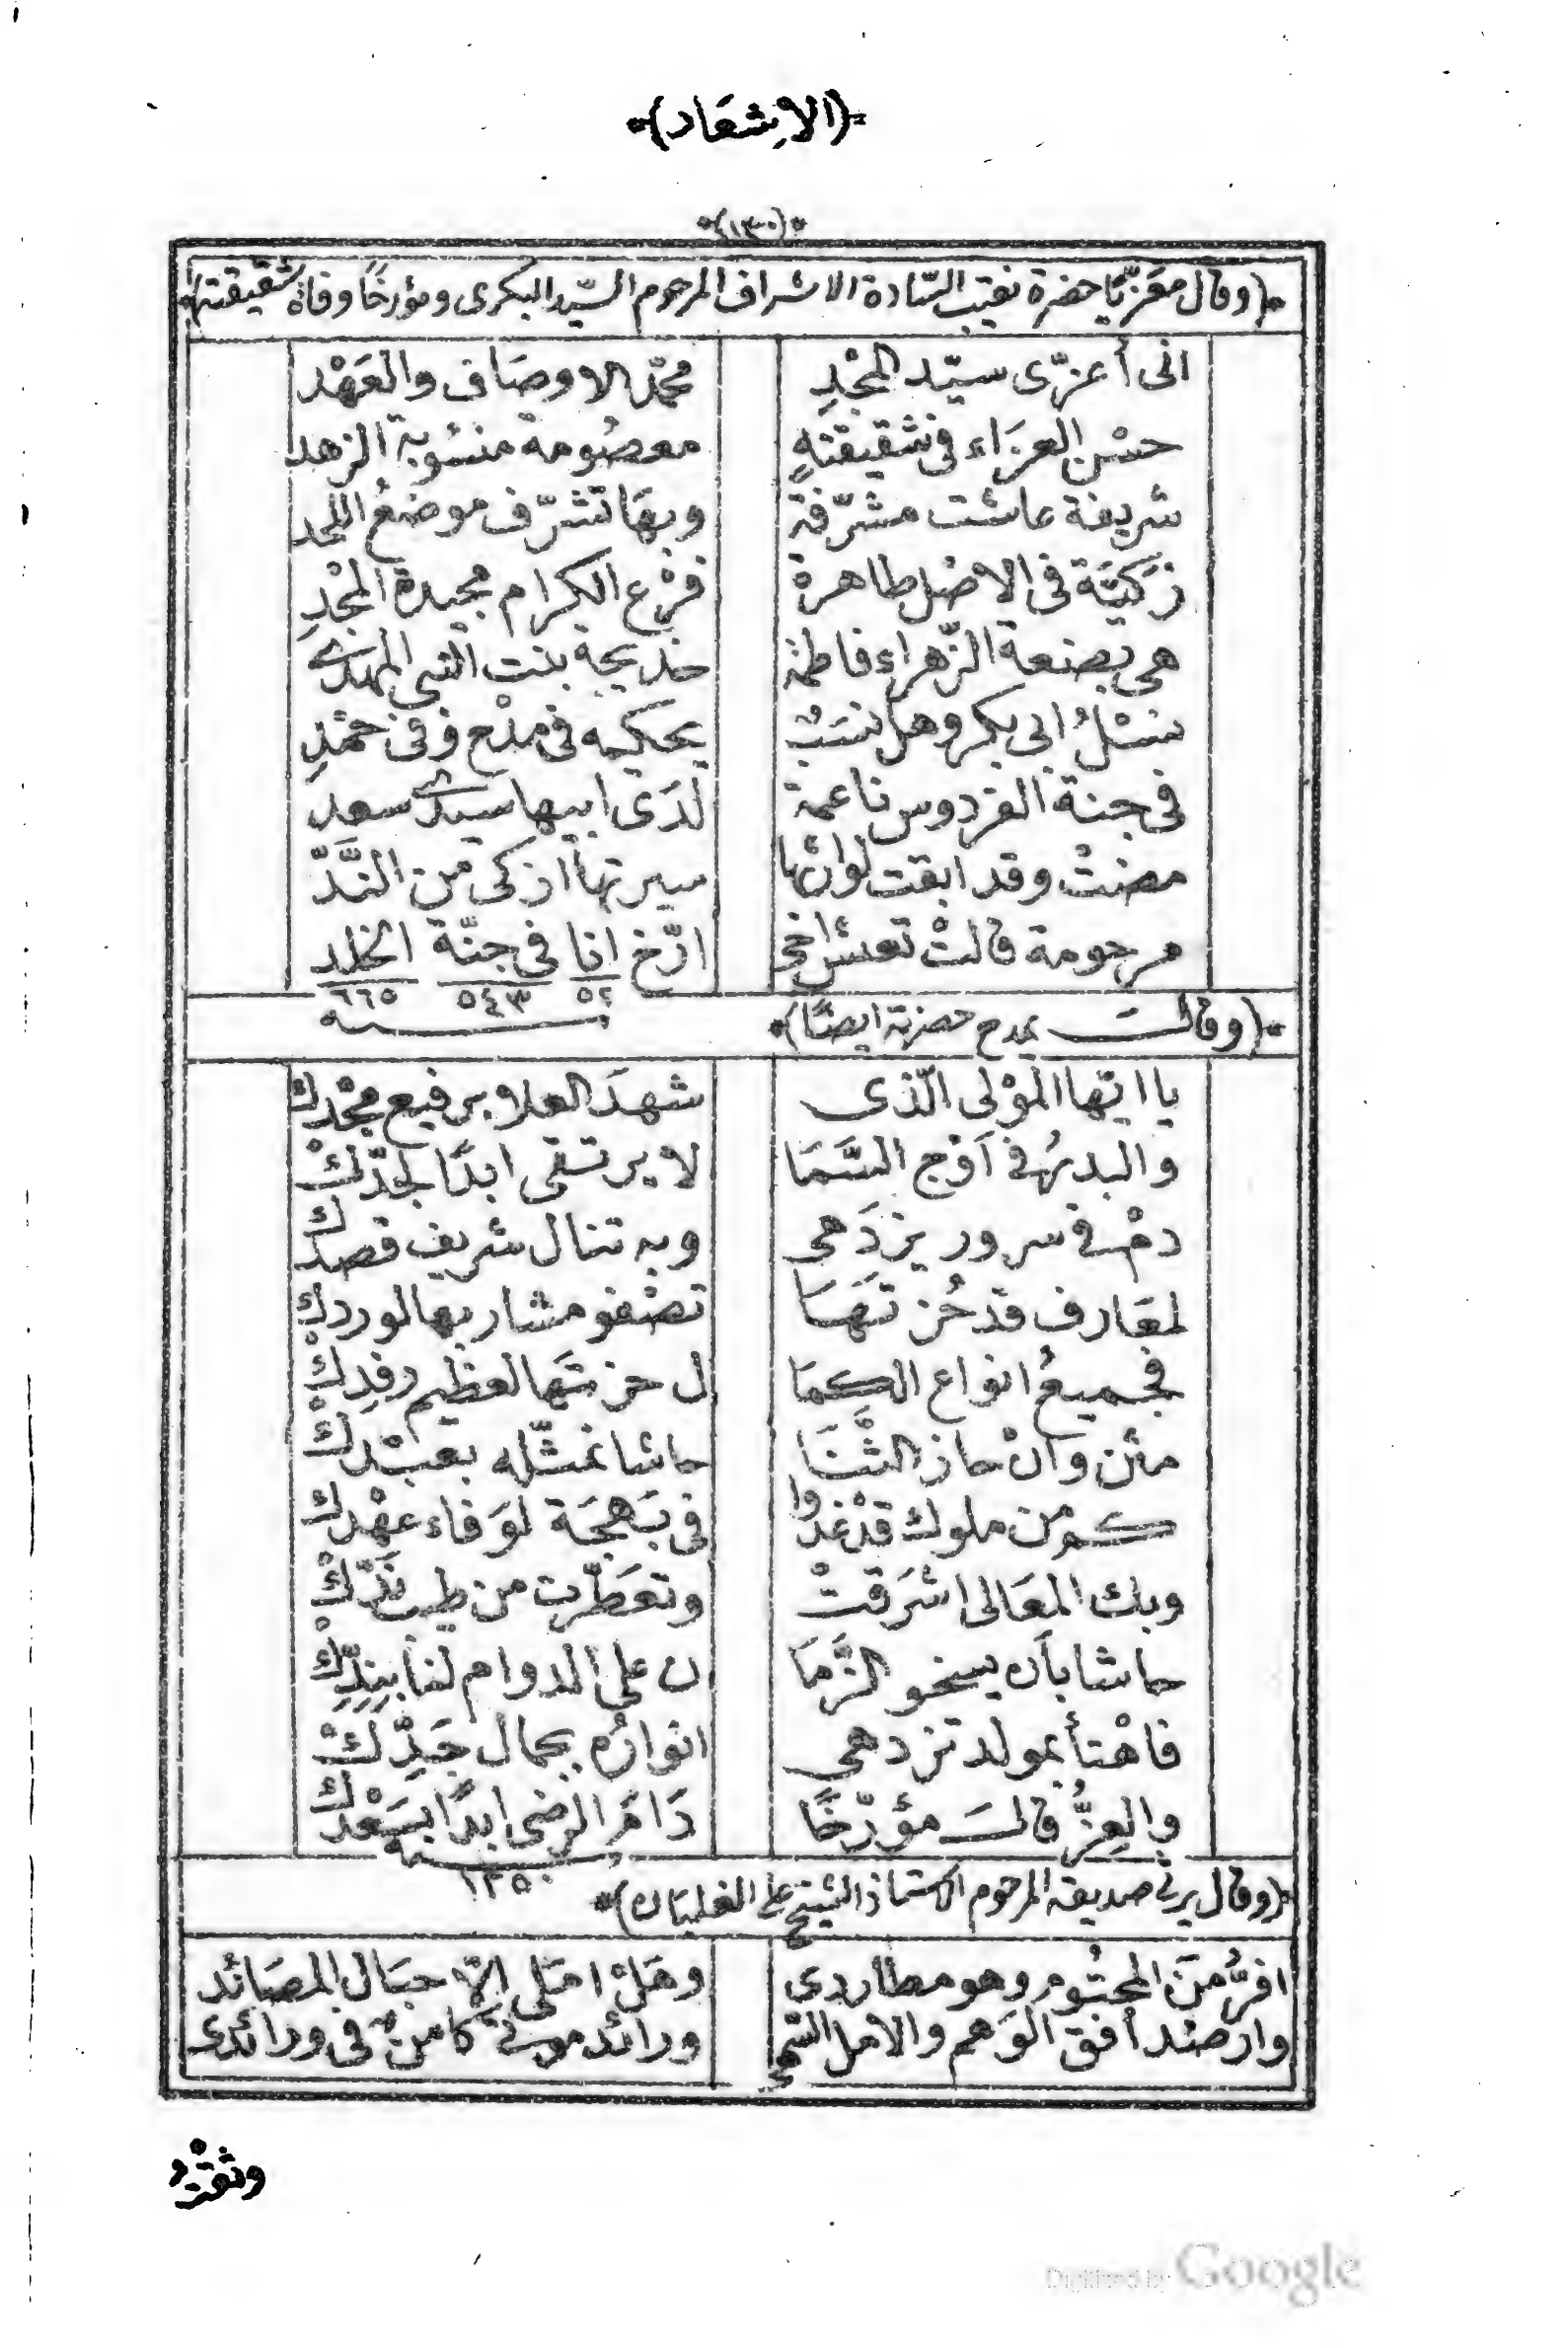 (الاِشعَاد)
(١٣٠)
(وقال معَزّيًا حضرة نقيب السّادة الاشراف المرحوم السّيد البكرى ومؤرخًا وفاة شقيقته)
انى أعزّى سيّد المجْدِ محمّد الاوصَاف والعَهْد
حسْن العزَاء فى شقيقتهِ معصُومة منسُوبة الزهد
شريفة عاشت مشرّفة وبهَا تشرّف موضعُ اللحد
زكيَّة فى الاصْل طاهرة فرْع الكرام مجيدة المجْدِ
هى بضعة الزّهراء فاطمة خديجة بنت النبى المهدى
نسْلُ ابى بكر وهل نسَبٌ يحكيه فى مدْح وفى حمْدِ
فى جنة الفردوس ناعمة لدَى ابيها سيدى سعد
مضتْ وقد ابقت لوارثها سيرتها اذكى من النَّدّ
مرحومة قالتْ تعش اخى ارّخ انا فى جنّة الخلد
٥٢ ٥٤٣ ٦٦٥
سنة
(وقالَ يمدح حضرته ايضًا)
يا ايّها الموْلى الّذى شهدَ العلا برفيع مجْدك
والبدرُ فى أوْج السَّمَا لا يرتقى ابدًا لجدّكْ
دمْ فى سرور يزدَهى وبه تنال شريف قصدك
لمعَارف قدْ حُزتهَا تصْفو مشاربها لوردك
فجميعُ انواع الكمَا ل حزتهَا لعظيم رفدِكْ
مَن وانْ حاز الثَّنَا حاشا نمثّله بعبْدكْ
كم من ملوك قدْ غدوا فى بَهجَة لوَفاء عهْدك
وبك المعَالى اشرَقتْ وتعَطّرت من طيب نَدّكْ
حاشا بأن يسخو الزَّمَا ن على الدوام لنا بنِدِّكْ
فاهْنأ بمولد تزدهى انوارُه بجمال جَدِّكْ
والعِزُّ قالَ مؤرّخًا دَامَ الرضى ابدًا بسَعْدكْ
سنة ١٢٥٠
(وقال يرثى صديقه المرحوم الاستاذ الشيخ على الغلبان)
افرُّ منَ المحتُوم وهو مطاردى وهَلْ امَلى الاّ حبَال المصَائد
وارصُد أفق الوَهم والامل السّهى ورائد موتى كامنٌ فى ورائدى
وثقتْ
Digitized by Google